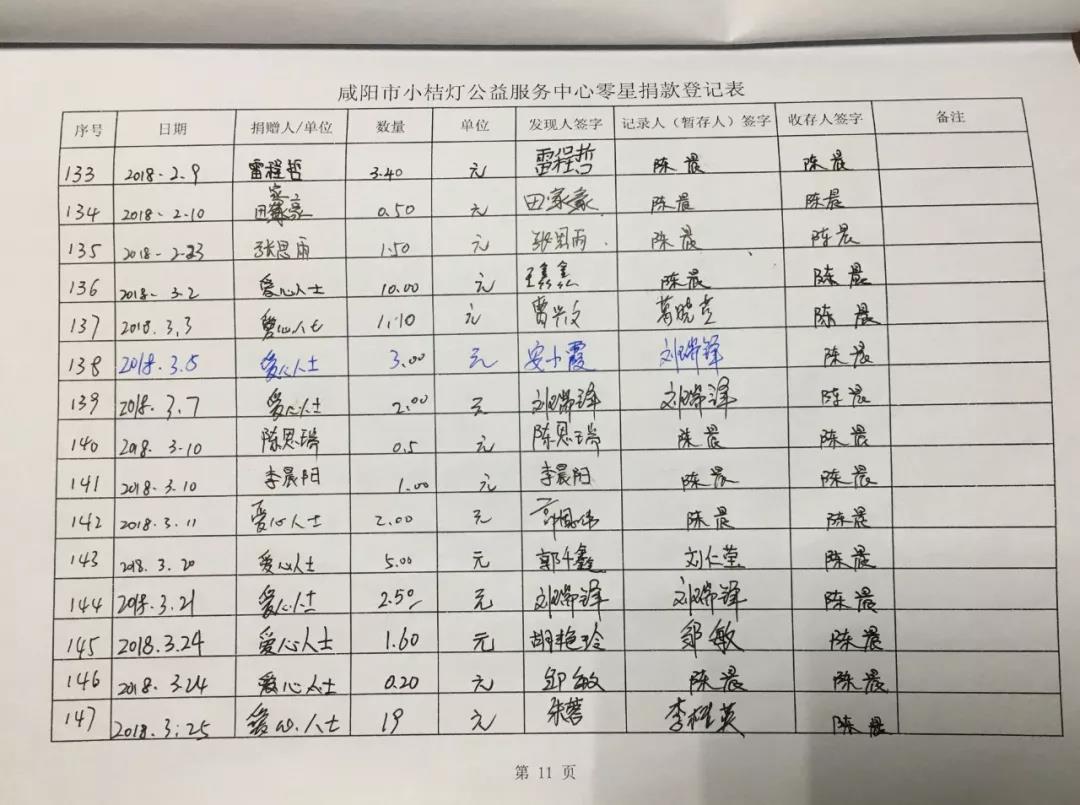 咸阳市小桔灯公益服务中心零星捐款登记表
序号 日期 捐赠人/单位 数量 单位 发现人签字 记录人（暂存人）签字 收存人签字 备注
133 2018.2.9 雷程哲 3.40 元 雷程哲 陈晨 陈晨
134 2018.2.10 田家豪 0.50 元 田家豪 陈晨 陈晨
135 2018.2.23 张思雨 1.50 元 张思雨 陈晨 陈晨
136 2018.3.2 爱心人士 10.00 元 王鑫鑫 陈晨 陈晨
137 2018.3.3 爱心人士 1.10 元 曹兴文 陈晨
138 2018.3.5 爱心人士 3.00 元 安小霞 刘瑞锋 陈晨
139 2018.3.7 爱心人士 2.00 元 刘瑞锋 刘瑞锋 陈晨
140 2018.3.10 陈思瑞 0.5 元 陈思瑞 陈晨 陈晨
141 2018.3.10 李晨阳 1.00 元 李晨阳 陈晨 陈晨
142 2018.3.11 爱心人士 2.00 元 陈晨 陈晨
143 2018.3.20 爱心人士 5.00 元 郭千鑫 刘仁莹 陈晨
144 2018.3.21 爱心人士 2.50 元 刘瑞锋 刘瑞锋 陈晨
145 2018.3.24 爱心人士 1.60 元 胡艳玲 邹敏 陈晨
146 2018.3.24 爱心人士 0.20 元 邹敏 陈晨 陈晨
147 2018.3.25 爱心人士 19 元 朱蓉 李桂英 陈晨
第 11 页